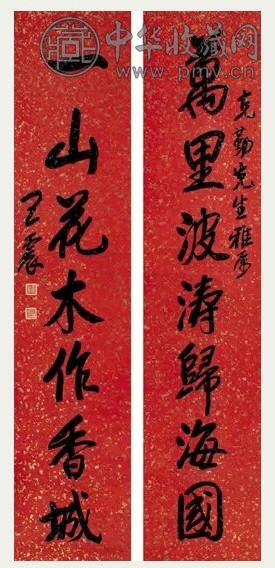 中华收藏网
www.pmv.cn
克勤先生雅属
萬里波涛歸海國
一山花木作香城
王震